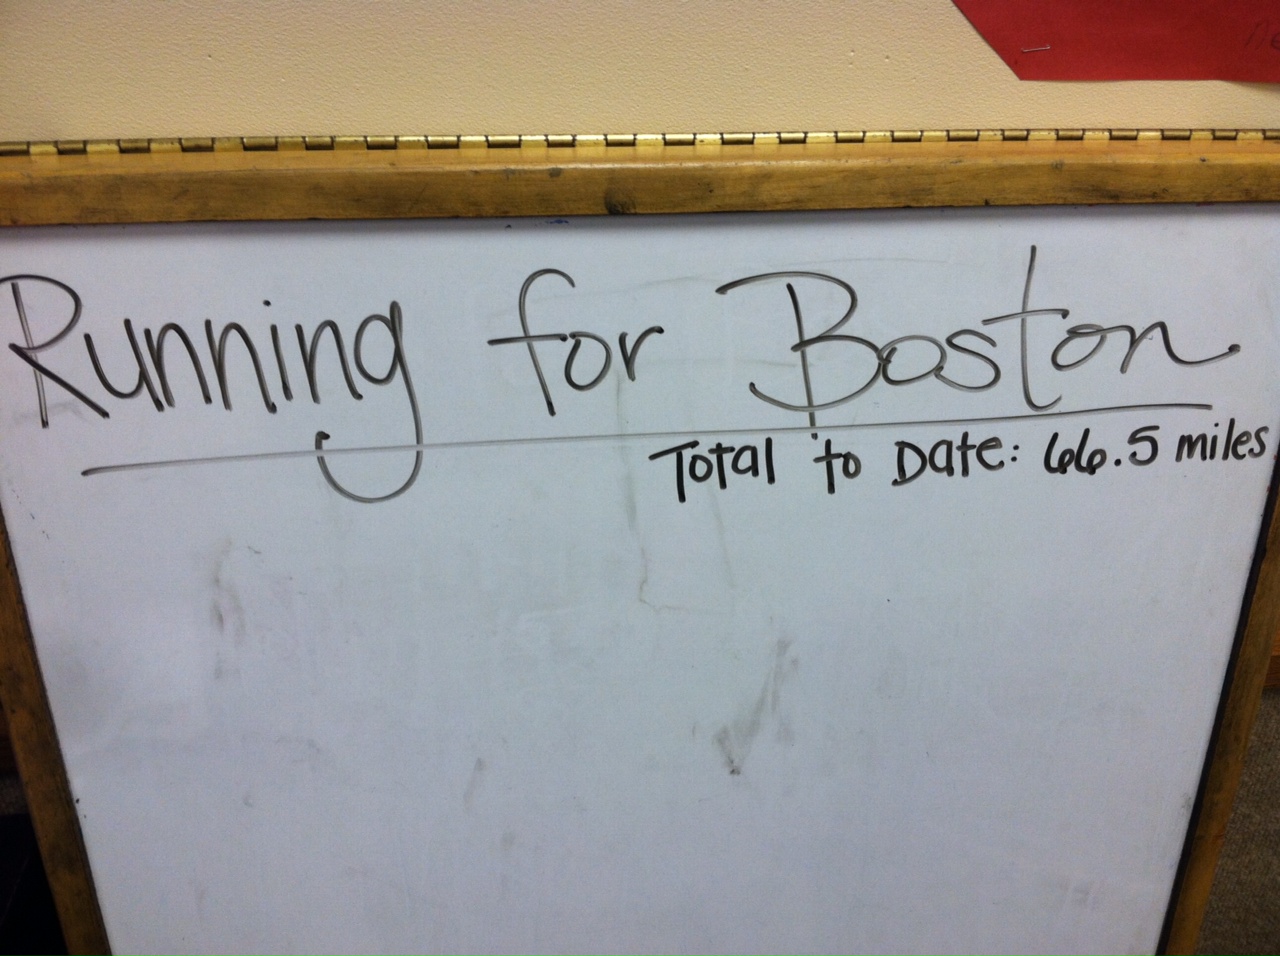 Running for Boston
Total to Date: 66.5 miles